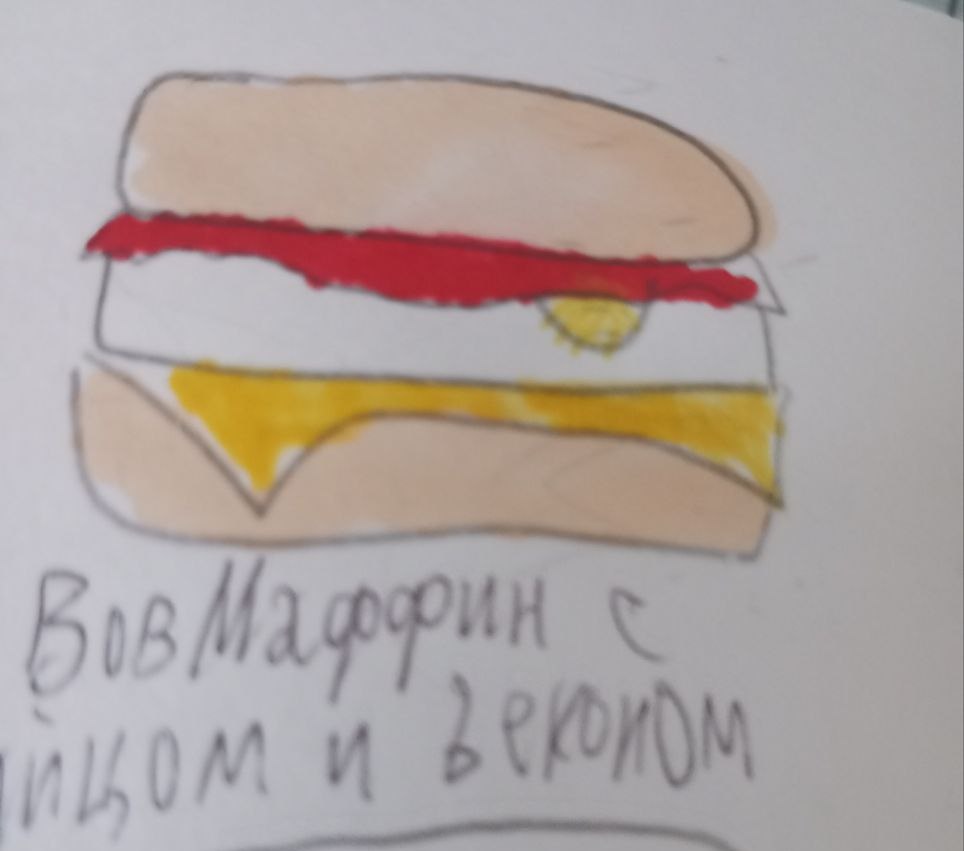 ВовМаффин с
йцом и беконом